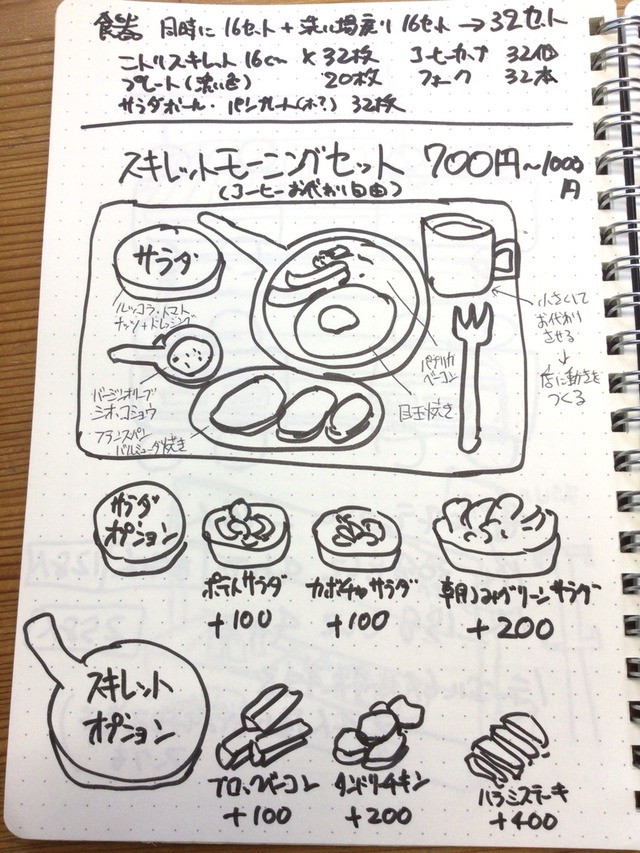 食器 同時に16セット+洗い場戻り16セット→32セット
ニトリスキレット16cm × 32枚 コーヒーカップ 32個
プレート(濃い色) 20枚 フォーク 32本
サラダボール・パンプレート(木?) 32枚
スキレットモーニングセット 700円~1000円
(コーヒーお代わり自由)
サラダ
ルッコラ・トマト
ナッツ+ドレッシング
バージンオリーブ
シオ、コショウ
フランスパン
バルミューダ焼き
パプリカ
ベーコン
目玉焼き
小さくして
お代わり
させる
↓
店に動きを
つくる
サラダ
オプション
ポテトサラダ
+100
カボチャサラダ
+100
朝つみグリーンサラダ
+200
スキレット
オプション
ブロックベーコン
+100
タンドリーチキン
+200
ハラミステーキ
+400